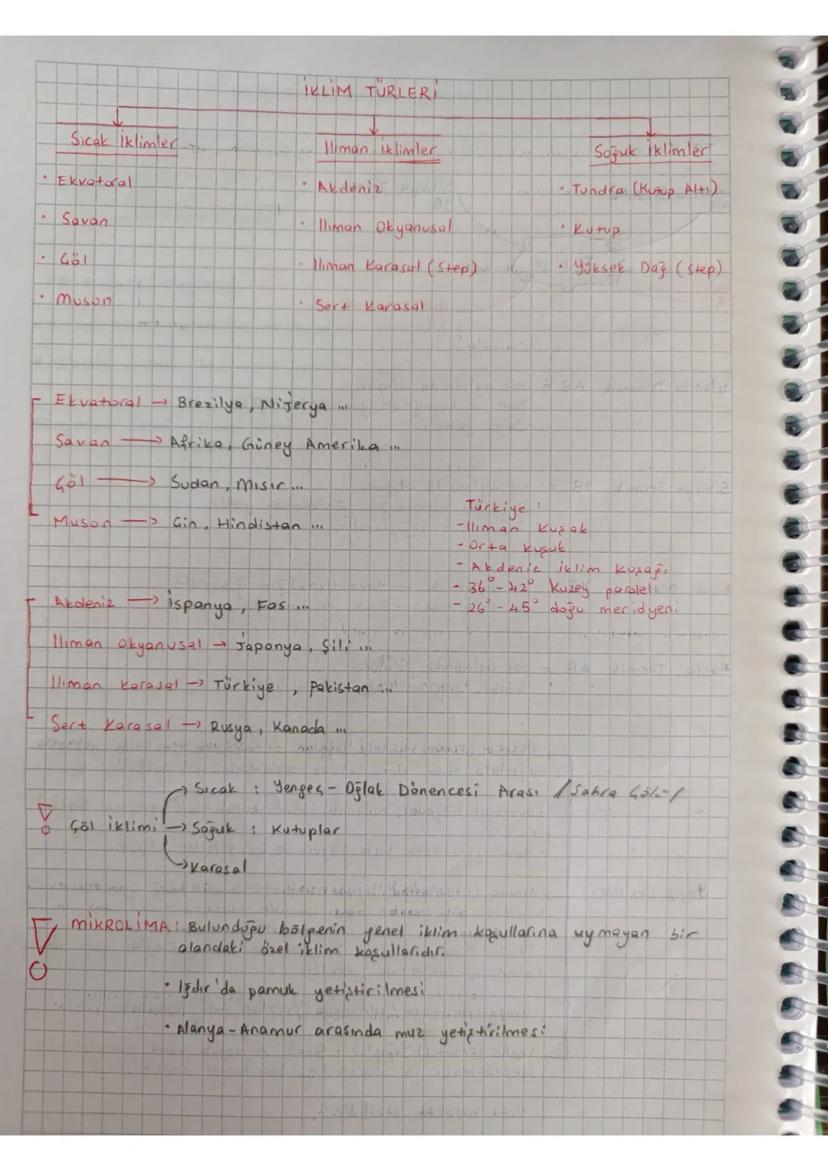 İKLİM TÜRLERİ
Sıcak İklimler
• Ekvatoral
• Savan
• Çöl
• Muson
Ilıman İklimler
• Akdeniz
• Ilıman Okyanusal
• Ilıman Karasal (Step)
• Sert Karasal
Soğuk İklimler
• Tundra (Kutup Altı)
• Kutup
• Yüksek Dağ (Step)
Ekvatoral → Brezilya, Nijerya ...
Savan → Afrika, Güney Amerika ...
Çöl → Sudan, Mısır ...
Muson → Çin, Hindistan ...
Türkiye :
- Ilıman Kuşak
- Orta Kuşak
- Akdeniz iklim kuşağı
- 36° - 42° Kuzey paraleli
- 26° - 45° doğu meridyeni
Akdeniz → İspanya, Fas ...
Ilıman Okyanusal → Japonya, Şili ...
Ilıman Karasal → Türkiye, Pakistan ...
Sert Karasal → Rusya, Kanada ...
Çöl iklimi
→ Sıcak : Yengeç - Oğlak Dönencesi Arası / Sahra Çölü /
→ Soğuk : Kutuplar
→ Karasal
MİKROLİMA: Bulunduğu bölgenin genel iklim koşullarına uymayan bir
alandaki özel iklim koşullarıdır.
• Iğdır'da pamuk yetiştirilmesi
• Alanya-Anamur arasında muz yetiştirilmesi